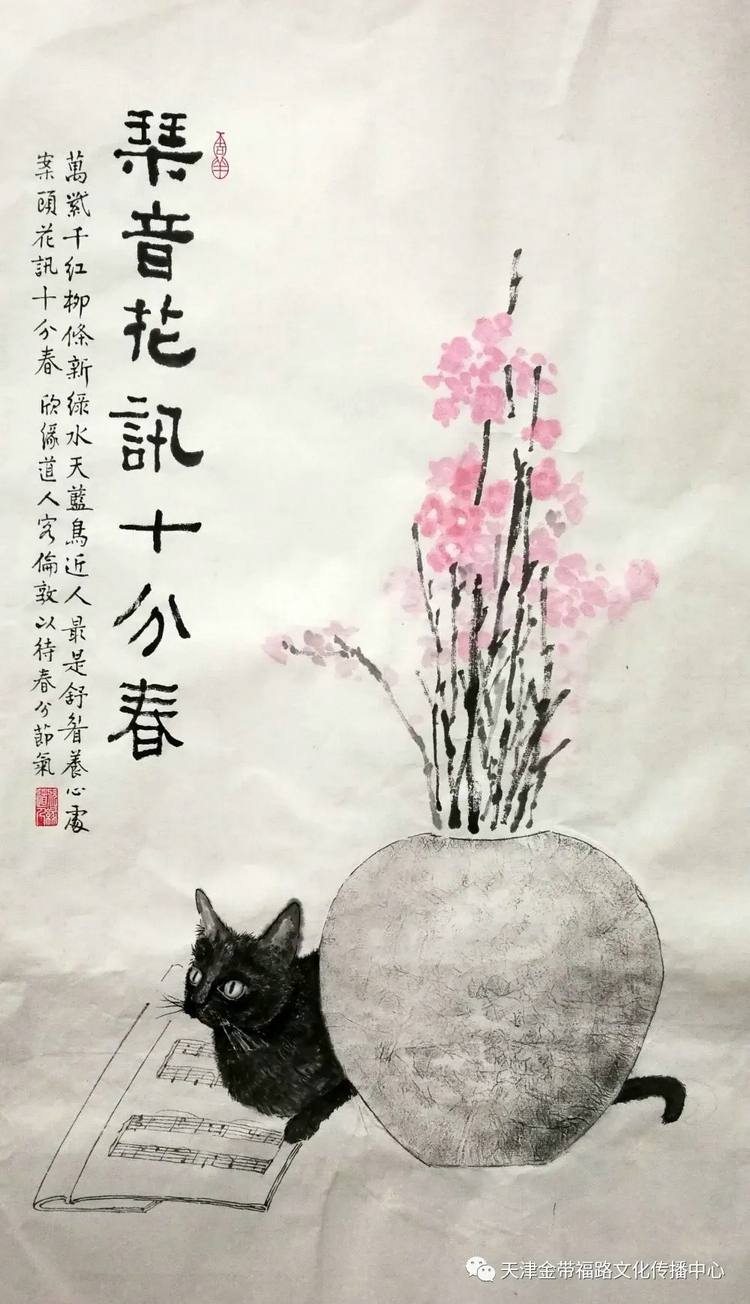 琹音花訊十分春
萬紫千紅柳條新綠水天藍鳥近人最是舒眉養心處
案頭花訊十分春 欣緣道人客倫敦以待春分節氣
天津金带福路文化传播中心